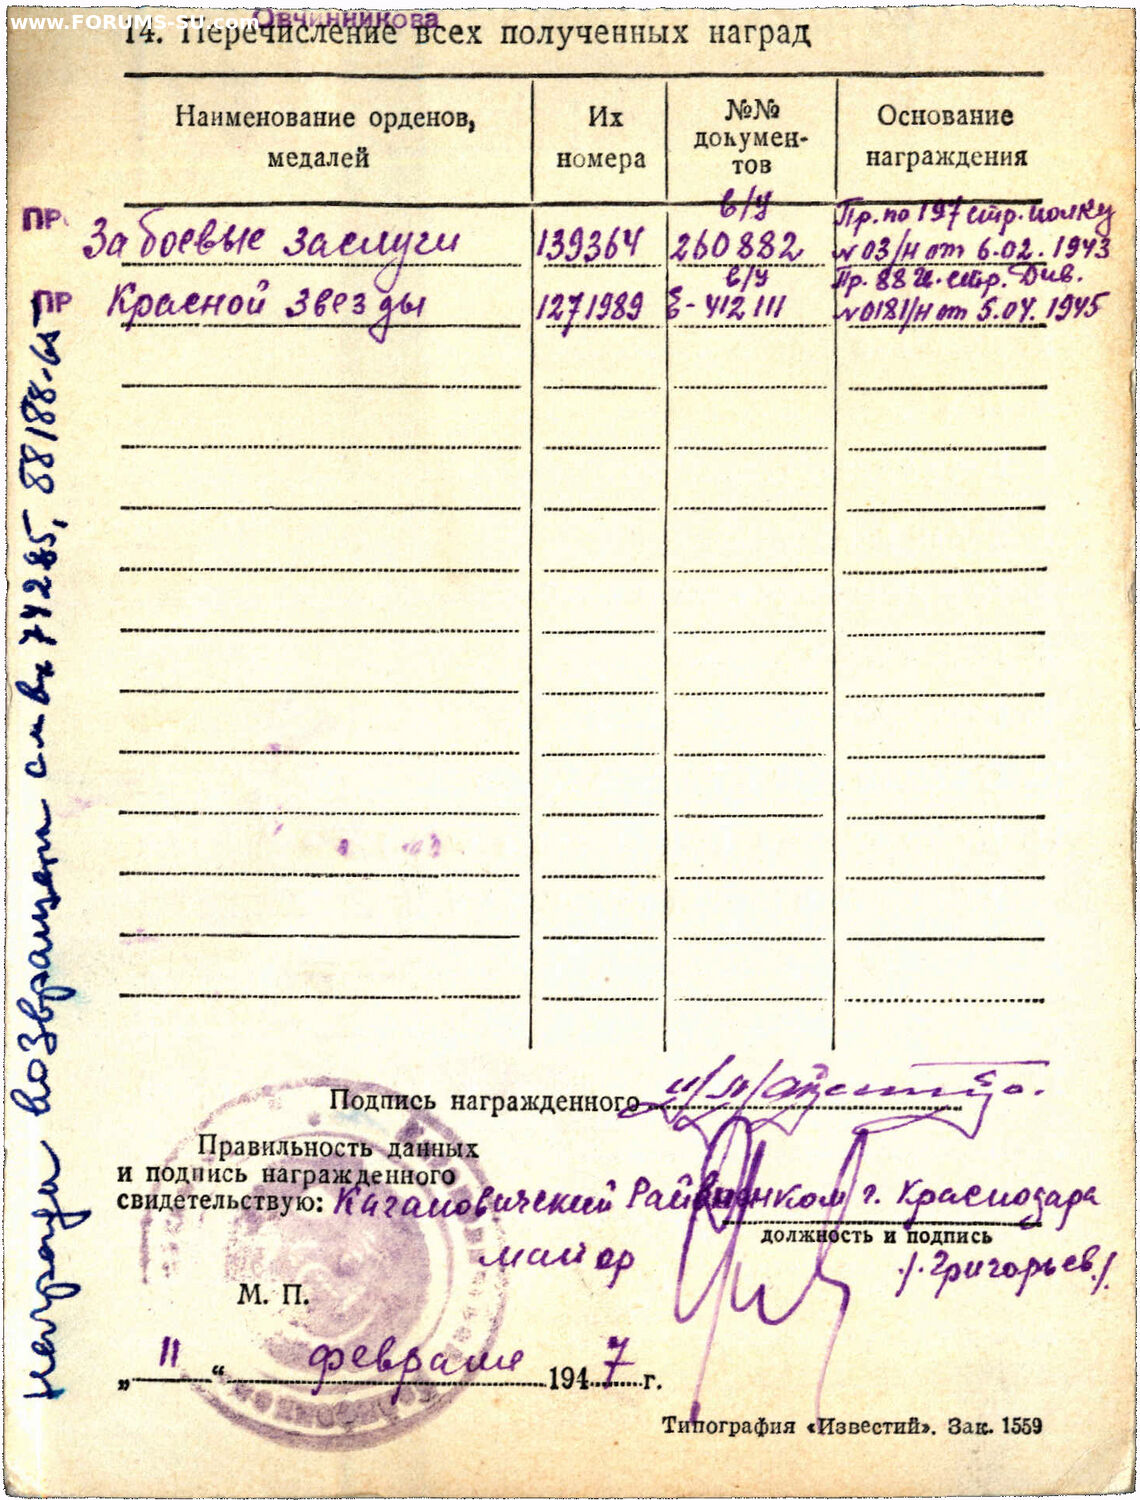 www.FORUMS-SU.com
Овчинникова
14. Перечисление всех полученных наград
Наименование орденов, медалей
Их номера
№№ докумен-тов
Основание награждения
ПР За боевые заслуги 139364 в/у 260882 Пр. по 197 стр. полку №03/н от 6.02.1943
ПР Красной звезды 1271989 в/у Е-412111 Пр. 88 г. стр. Див. №0181/н от 5.04.1945
Награды возвращены 74285, 88188
Подпись награжденного
Правильность данных
и подпись награжденного
свидетельствую: Кагановичский Райвоенком г. Краснодара
должность и подпись
майор /Григорьев/
М. П.
„11“ февраля 1947 г.
Типография «Известий». Зак. 1559